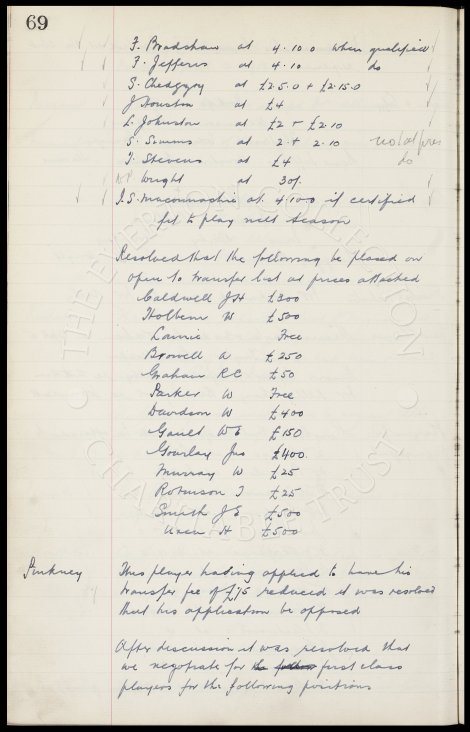 69
F. Bradshaw at 4.10.0 when qualified
F. Jefferis at 4.10 do
S. Chedgzoy at £2.5.0 + £2.15.0
J Houston at £4
L. Johnston at £2 + £2.10
S. Simms at 2 + 2.10 not at pres
T. Stevens at £4 do
Wright at 30/.
J.S. Maconnachie at 4.10.0 if certified
fit to play next season
Resolved that the following be placed on
open to transfer list at prices attached
Caldwell JH £300
Holbem W £500
Lawrie Free
Browell A £250
Graham RC £50
Parker W Free
Davidson W £400
Gault WE £150
Gourlay Jas £400.
Murray W £25
Robinson T £25
Smith J E £500
Uren H £500
Pinkney This player having applied to have his
transfer fee of £75 reduced it was resolved
that his application be opposed
After discussion it was resolved that
we negotiate for first class
players for the following positions
THE EVERTON COLLECTION
CHARITABLE TRUST